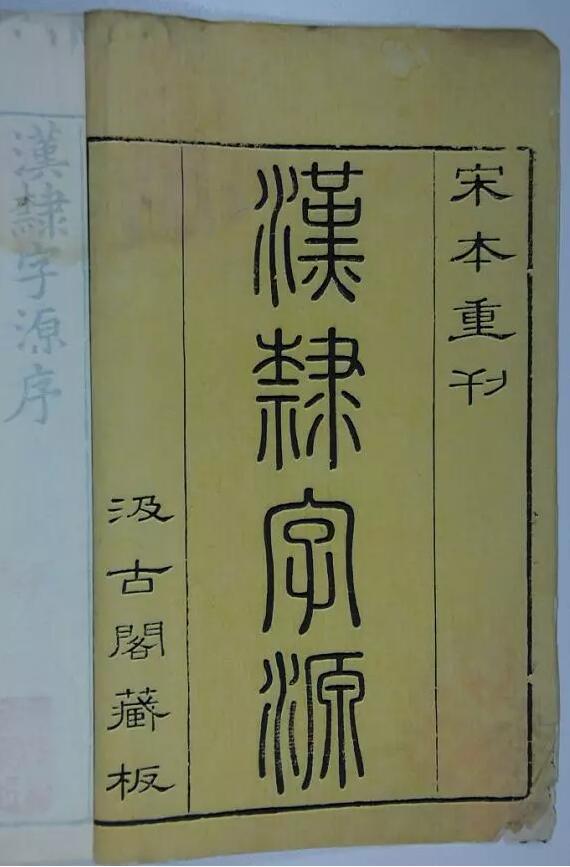 宋本重刊
漢隸字源
汲古閣藏板
漢隸字源序